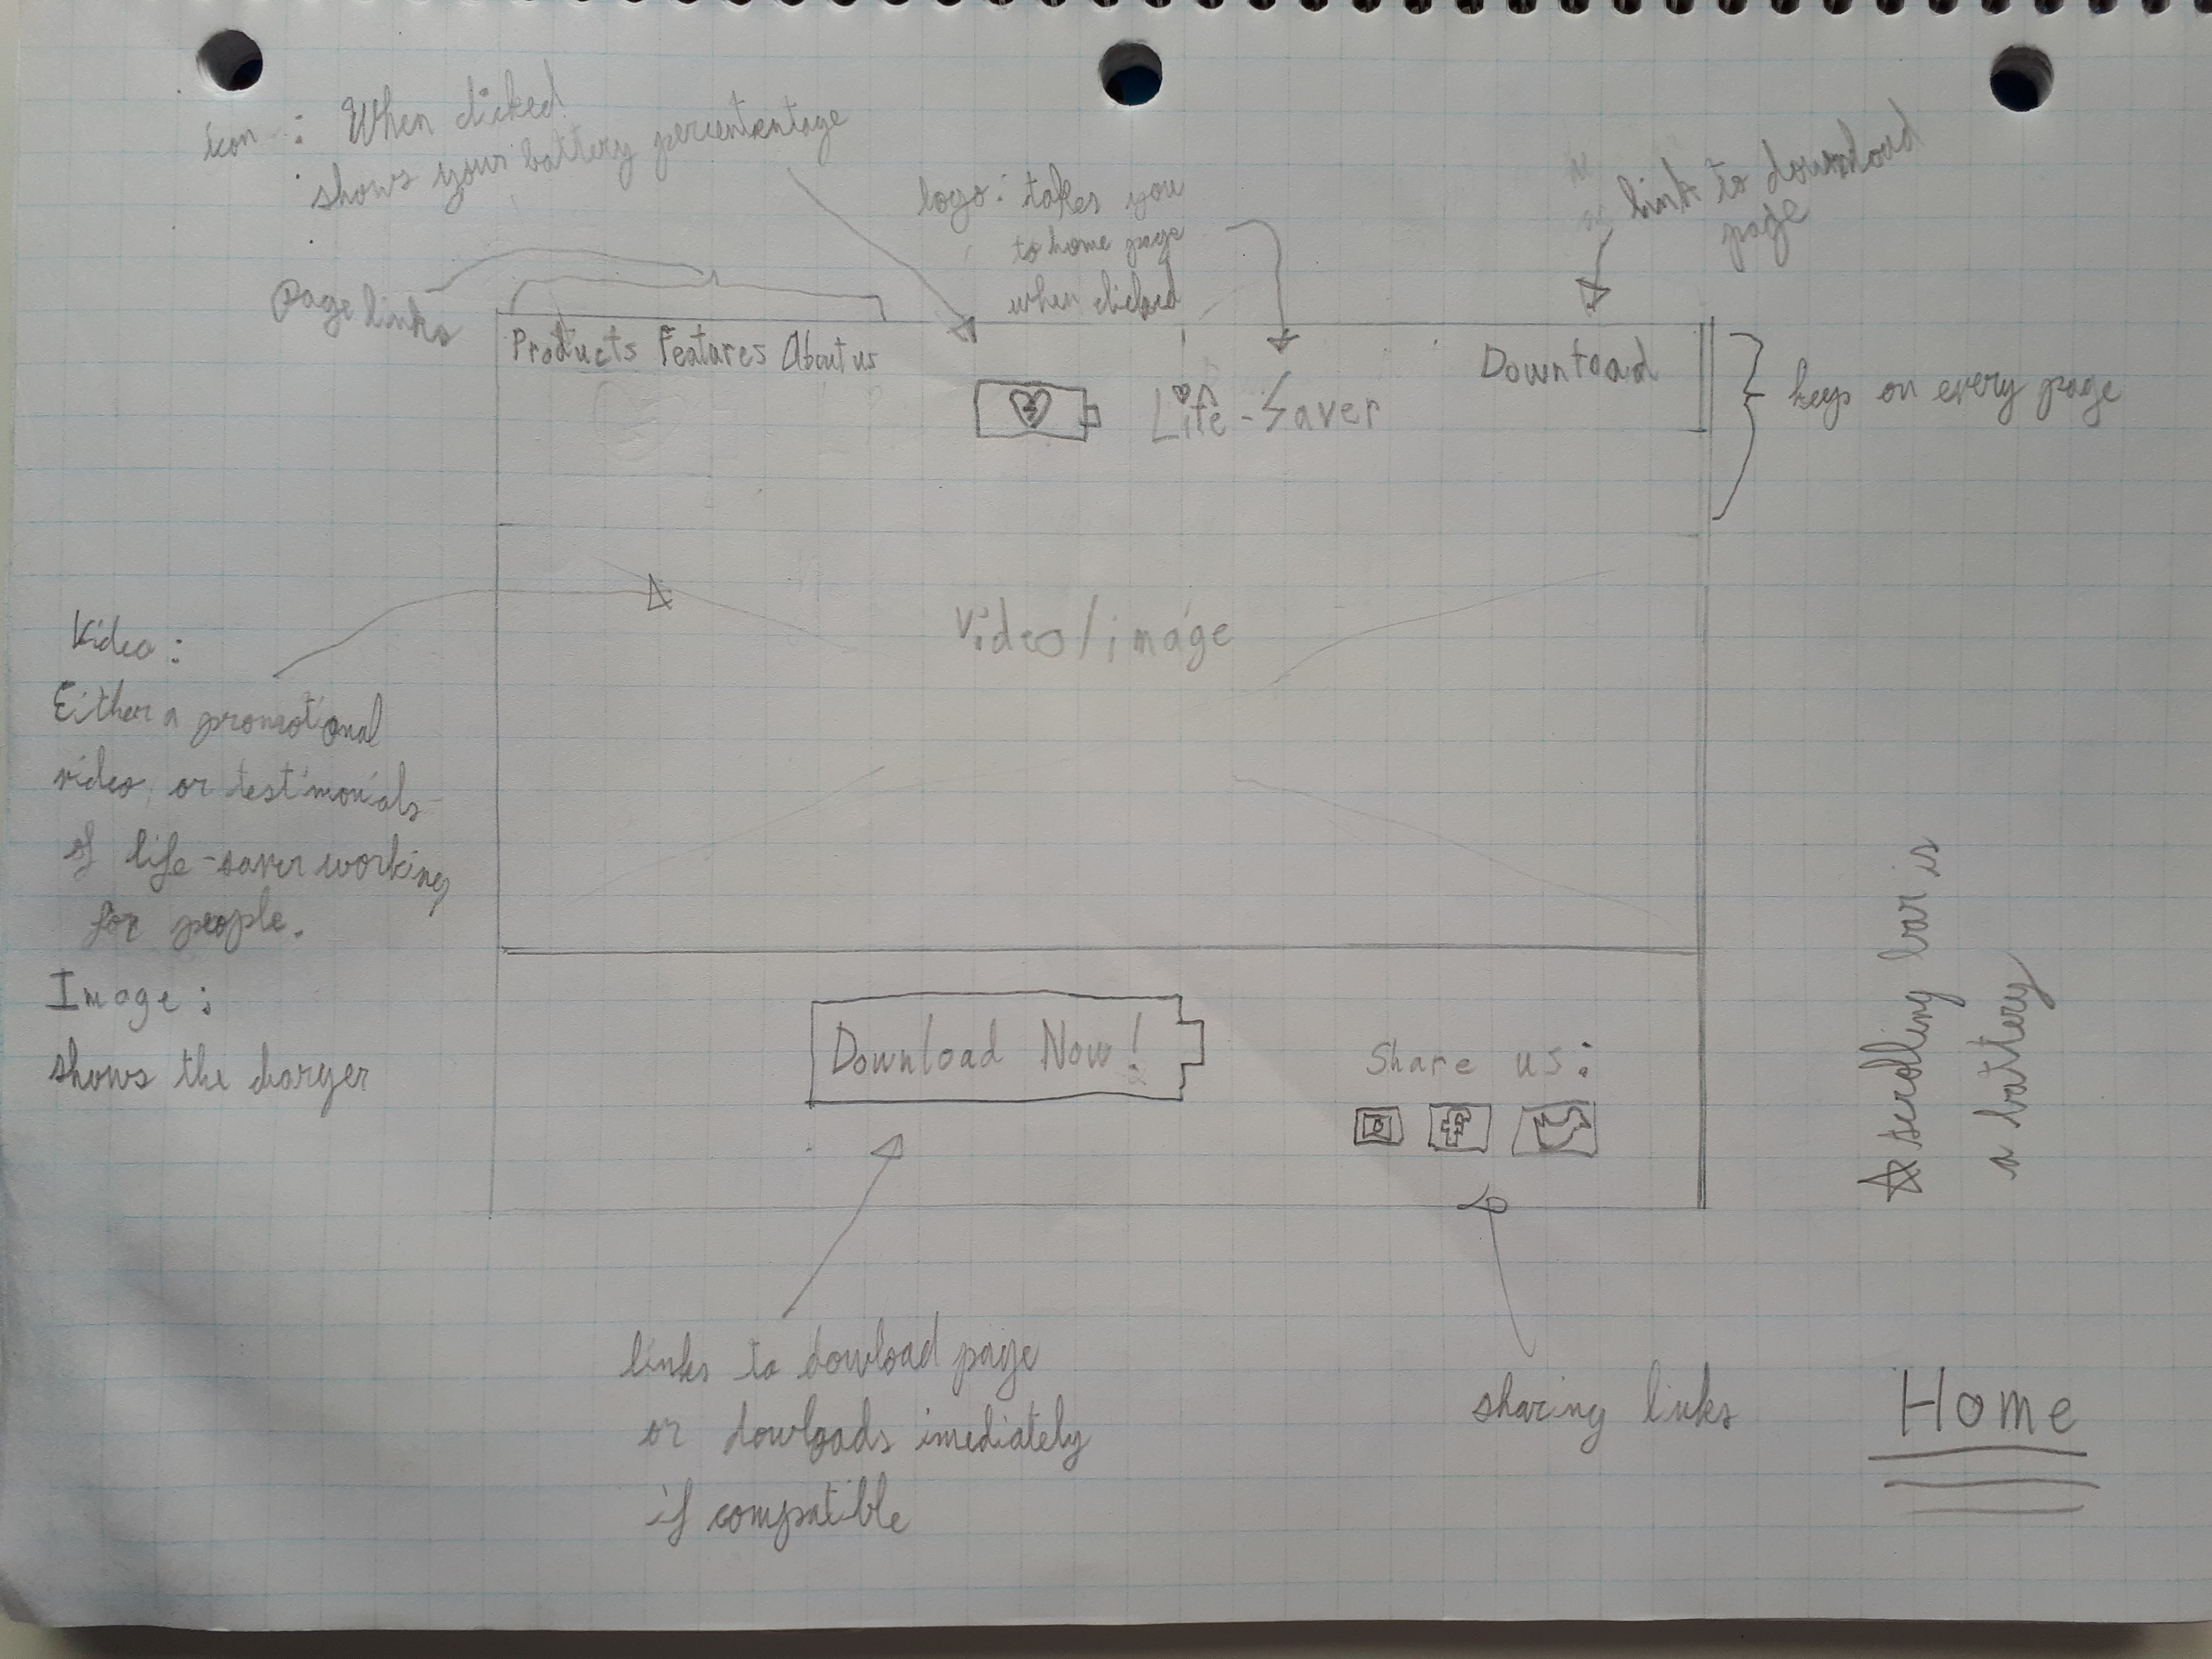 icon : When clicked
shows your battery percentantage
logo: takes you
to home page
when clicked
link to download
page
Page links
Products Features About us
Life-Saver
Download
keys on every page
Video/image
Video :
Either a promotional
video, or testimonials
of life-saver working
for people.
Image :
shows the charger
scrolling bar is
a battery
Download Now!
Share us:
f
links to dowload page
or dowloads imediately
if compatible
sharing links
Home